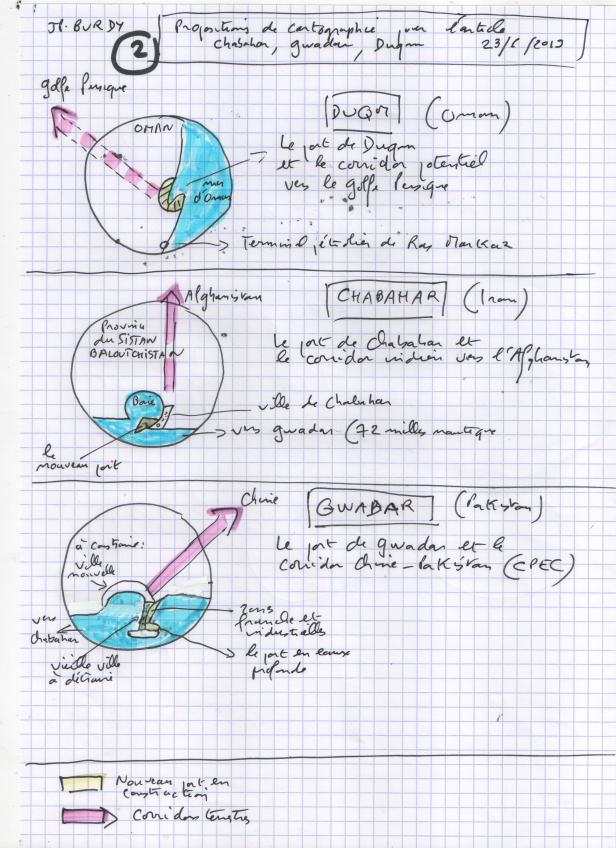 JP. BURDY
2
Propositions de cartographie pour l'article
Chabahar, Gwadar, Duqm 23/6/2019
golfe Persique
OMAN
mer
d'Oman
DUQM (Oman)
Le port de Duqm
et le corridor potentiel
vers le golfe Persique
Terminal pétrolier de Ras Markaz
Afghanistan
Province
du SISTAN
BALOUTCHISTAN
Baie
CHABAHAR (Iran)
Le port de Chabahar et
le corridor indien vers l'Afghanistan
ville de Chabahar
vers Gwadar (72 milles nautique
le
nouveau port
Chine
GWABAR (Pakistan)
Le port de Gwadar et le
corridor Chine-Pakistan (CPEC)
à construire :
ville
nouvelle
vers
Chabahar
zones
franche et
industrielles
le port en eaux
profonde
vieille ville
à détruire
Nouveau port en
construction
Corridors terrestres